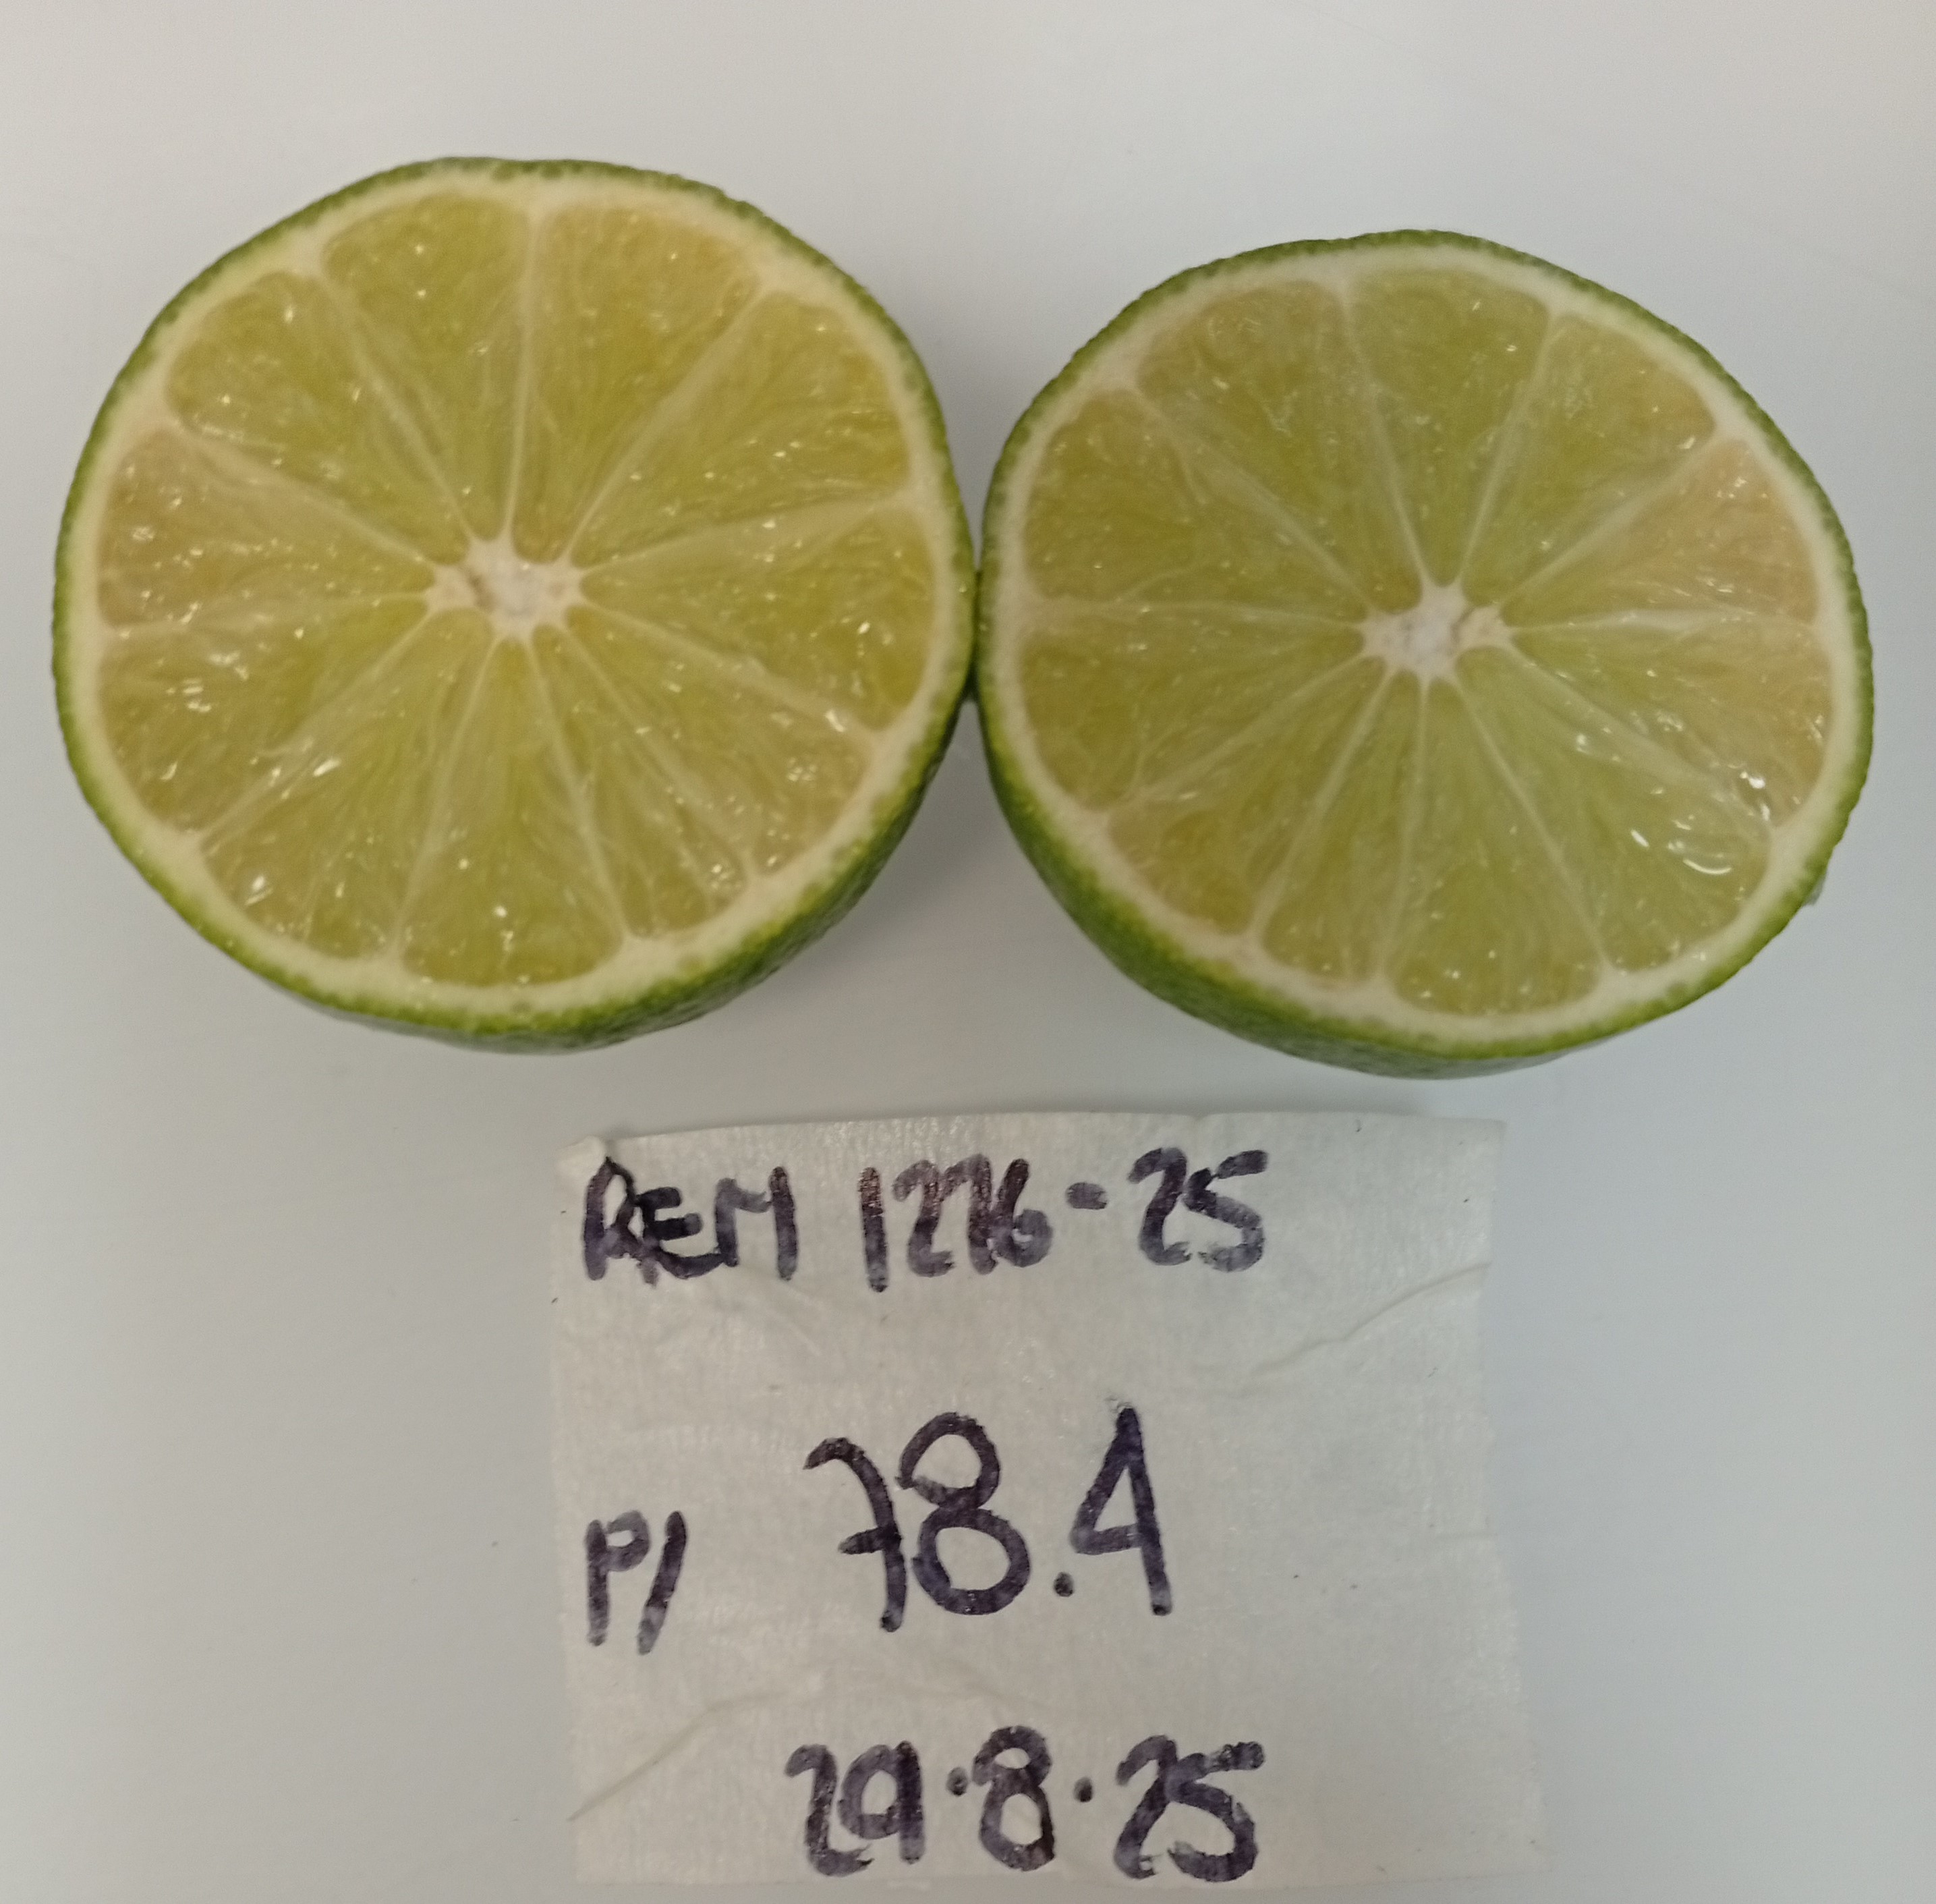 REM 1276-25
P/ 78.4
29.8.25